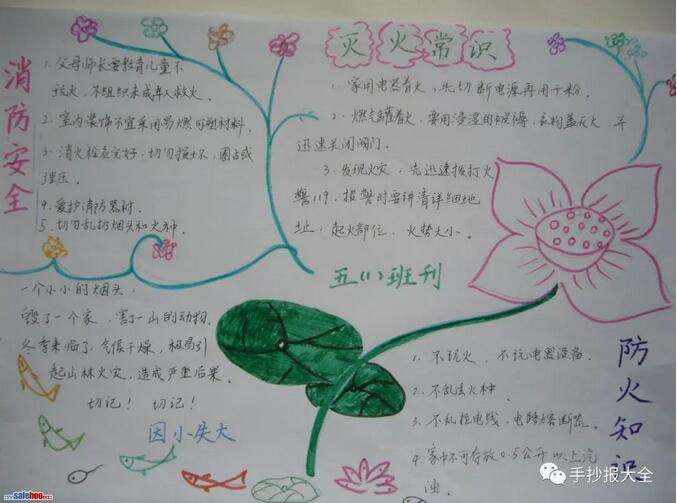 消防安全
1. 父母师长要教育儿童不
玩火，不组织未成年人救火。
2. 室内装饰不宜采用易燃可塑材料。
3. 消火栓应完好，切勿损坏、圈占或
埋压。
4. 爱护消防器材。
5. 切勿乱扔烟头和火种。
灭火常识
1. 家用电器着火，先切断电源再用干粉。
2. 燃气罐着火，要用浸湿的被褥、衣物盖灭火，并
迅速关闭阀门。
3. 发现火灾，先迅速拨打火
警119，报警时要讲清详细地
址，起火部位，火势大小。
五(1)班刊
一个小小的烟头，
毁了一个家，害了一山的动物。
冬季来临了，气候干燥，极易引
起山林火灾，造成严重后果。
切记！切记！
因小失大
防火知识
1. 不玩火，不玩电器设备。
2. 不乱丢火种。
3. 不乱拉电线，电路熔断器。
4. 家中不可存放0.5公升以上汽
油。
手抄报大全
www.safehoo.com